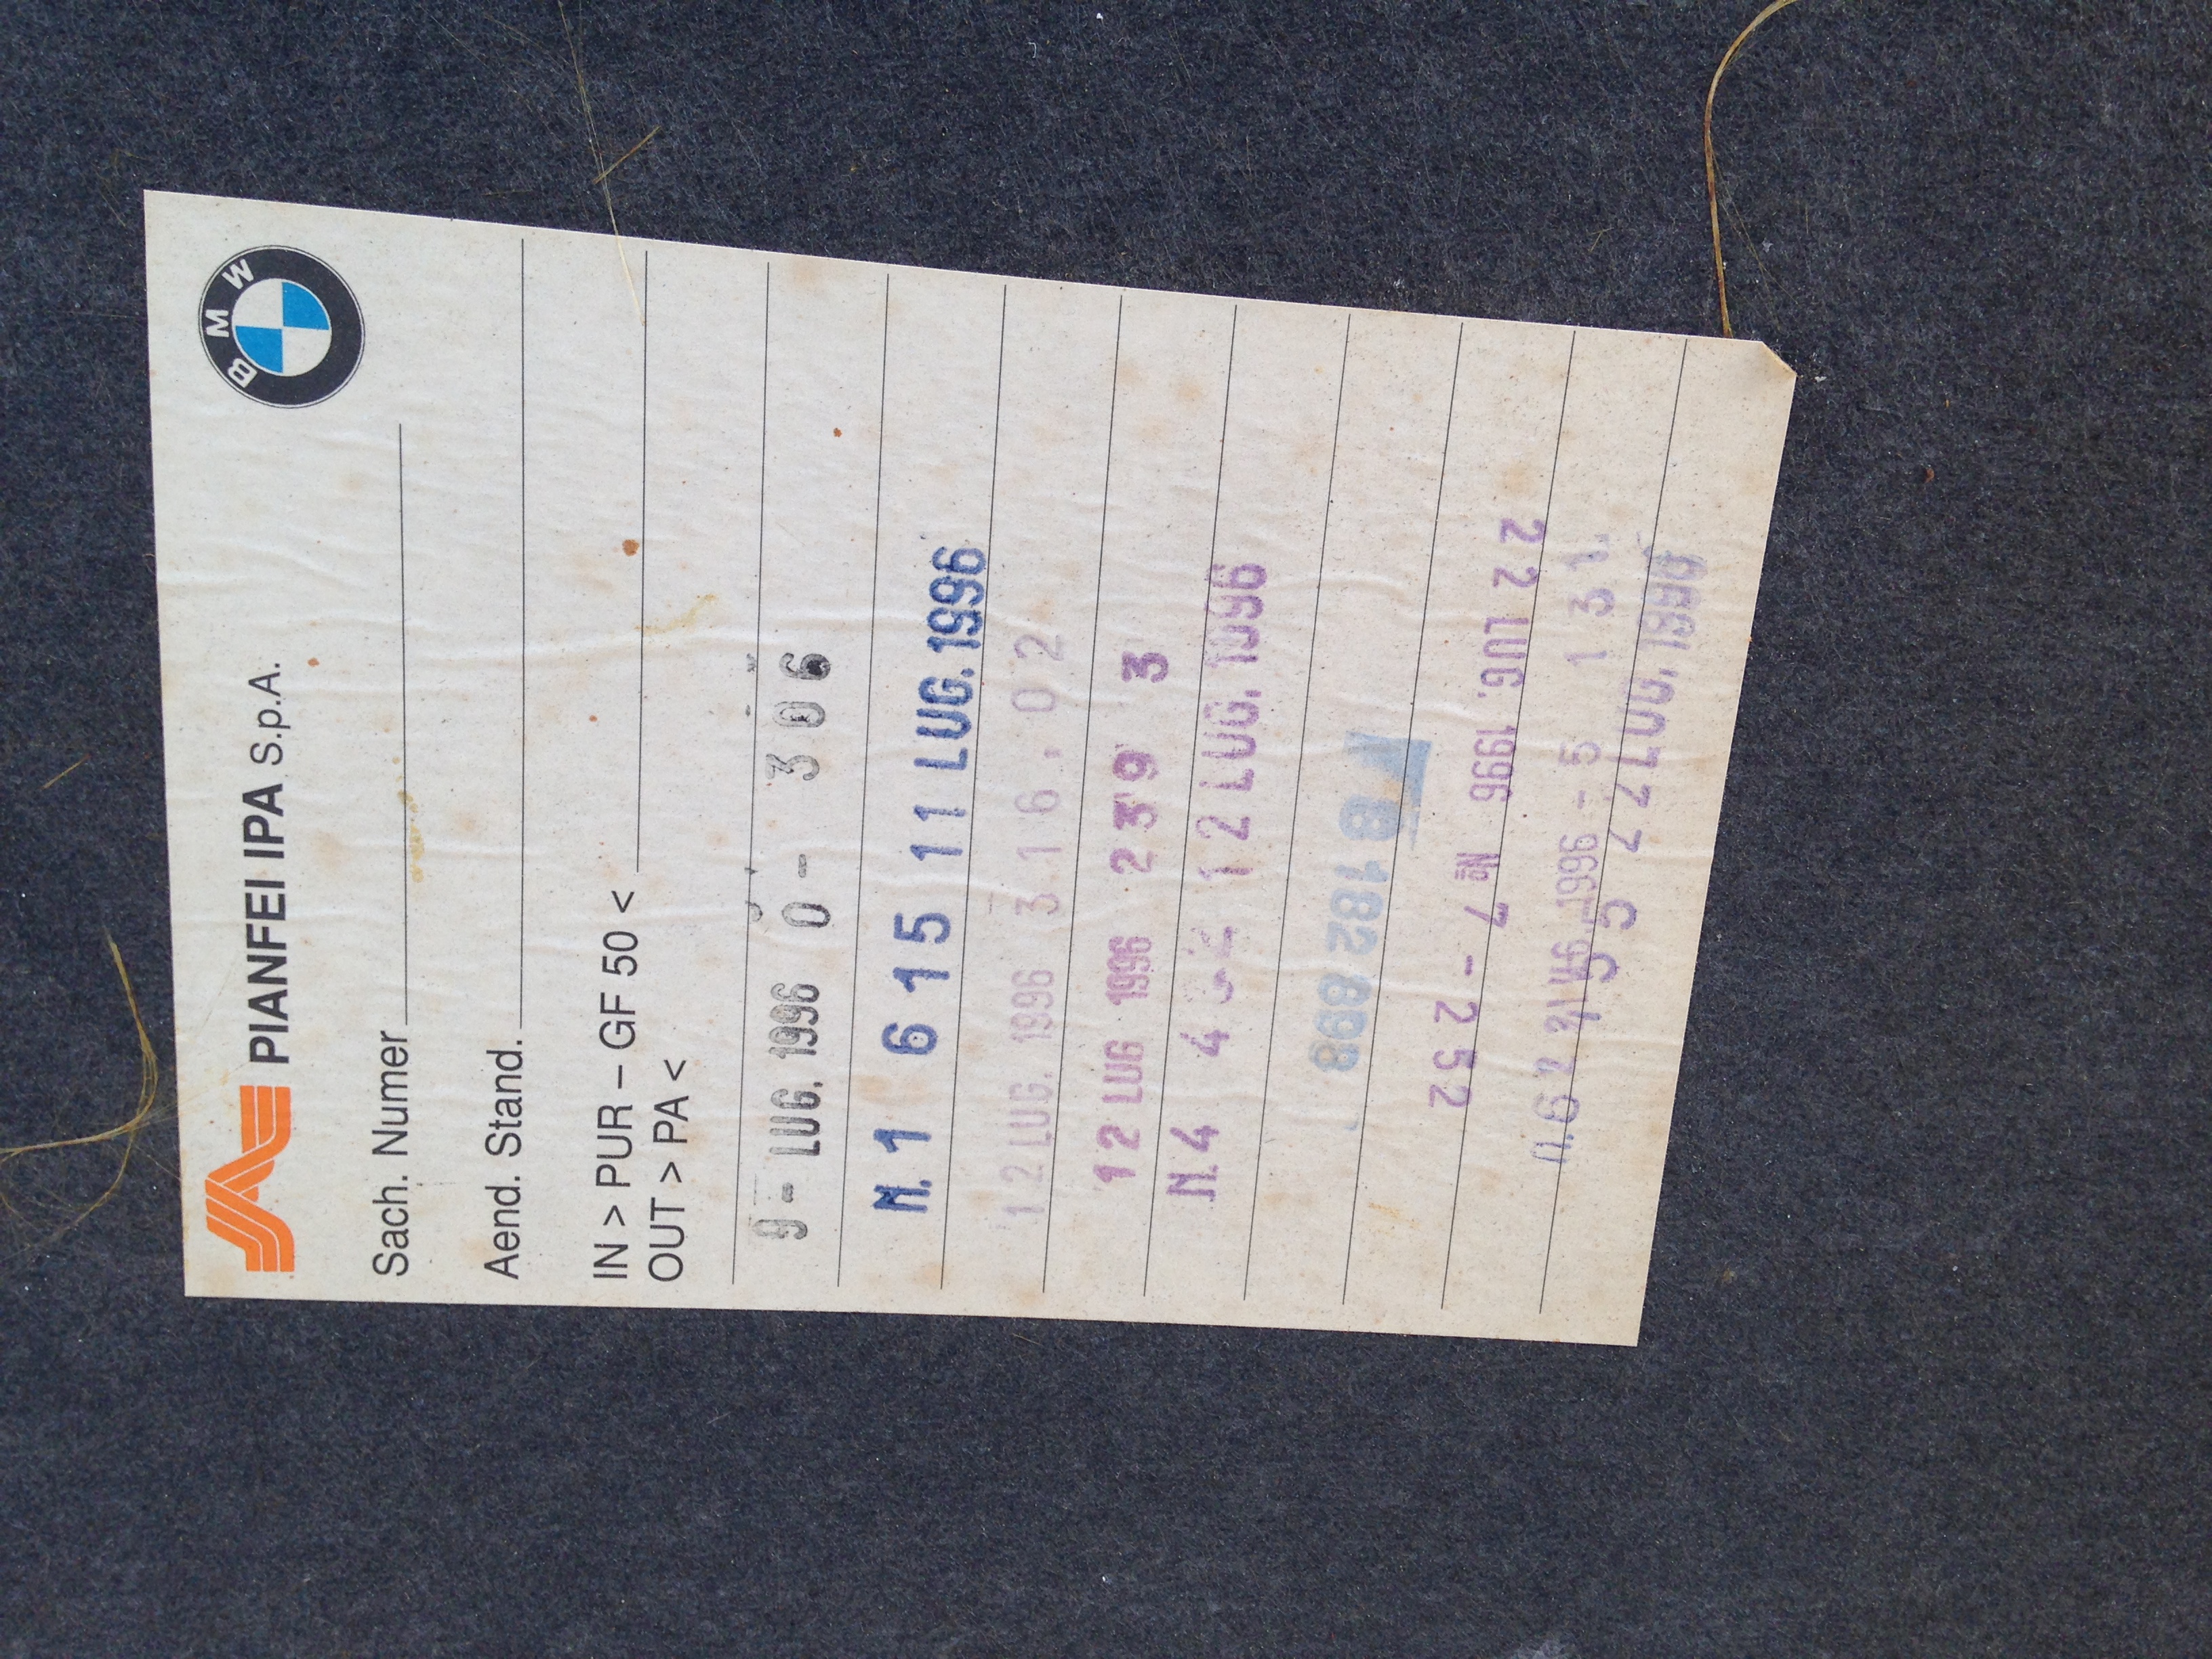 BMW
PIANFEI IPA S.p.A.
Sach. Numer
Aend. Stand.
IN > PUR – GF 50 <
OUT > PA <
9 - LUG. 1996 0 - 306
N. 1 6 15 11 LUG. 1996
12 LUG. 1996 316.02
12 LUG 1996 239 3
N.4 4 12 LUG. 1996
22 LUG. 1996 № 7 - 252
1996 - 5 131